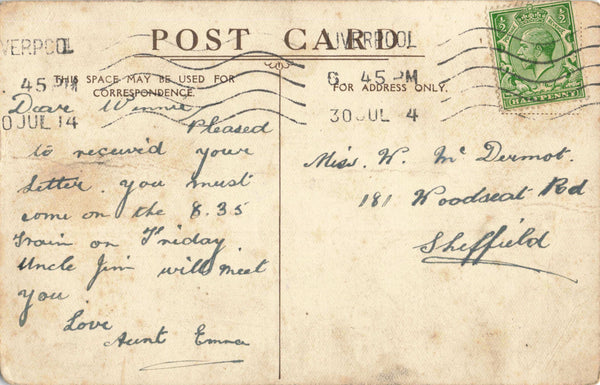 POST CARD
LIVERPOOL
6 45 PM
30 JUL 4
VERPOOL
45 PM
0 JUL 14
½ ½
HALFPENNY
THIS SPACE MAY BE USED FOR
CORRESPONDENCE.
FOR ADDRESS ONLY.
Dear Winnie
Pleased
to received your
Letter. you must
come on the 8.35
Train on Friday
Uncle Jim will meet
you
Love
Aunt Emma
Miss. W. Mc Dermot.
181 Woodseat Rd
Sheffield